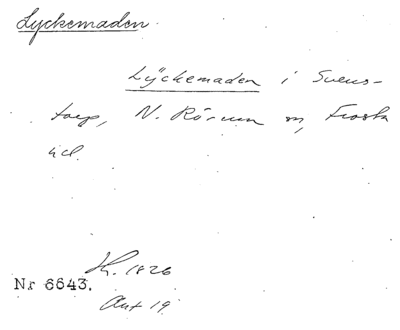 Lyckemaden.
Lÿckemaden i Svens-
torp, N. Rörum sn, Frosta
hd.
Th. 1826
Nr 6643.
Akt 19